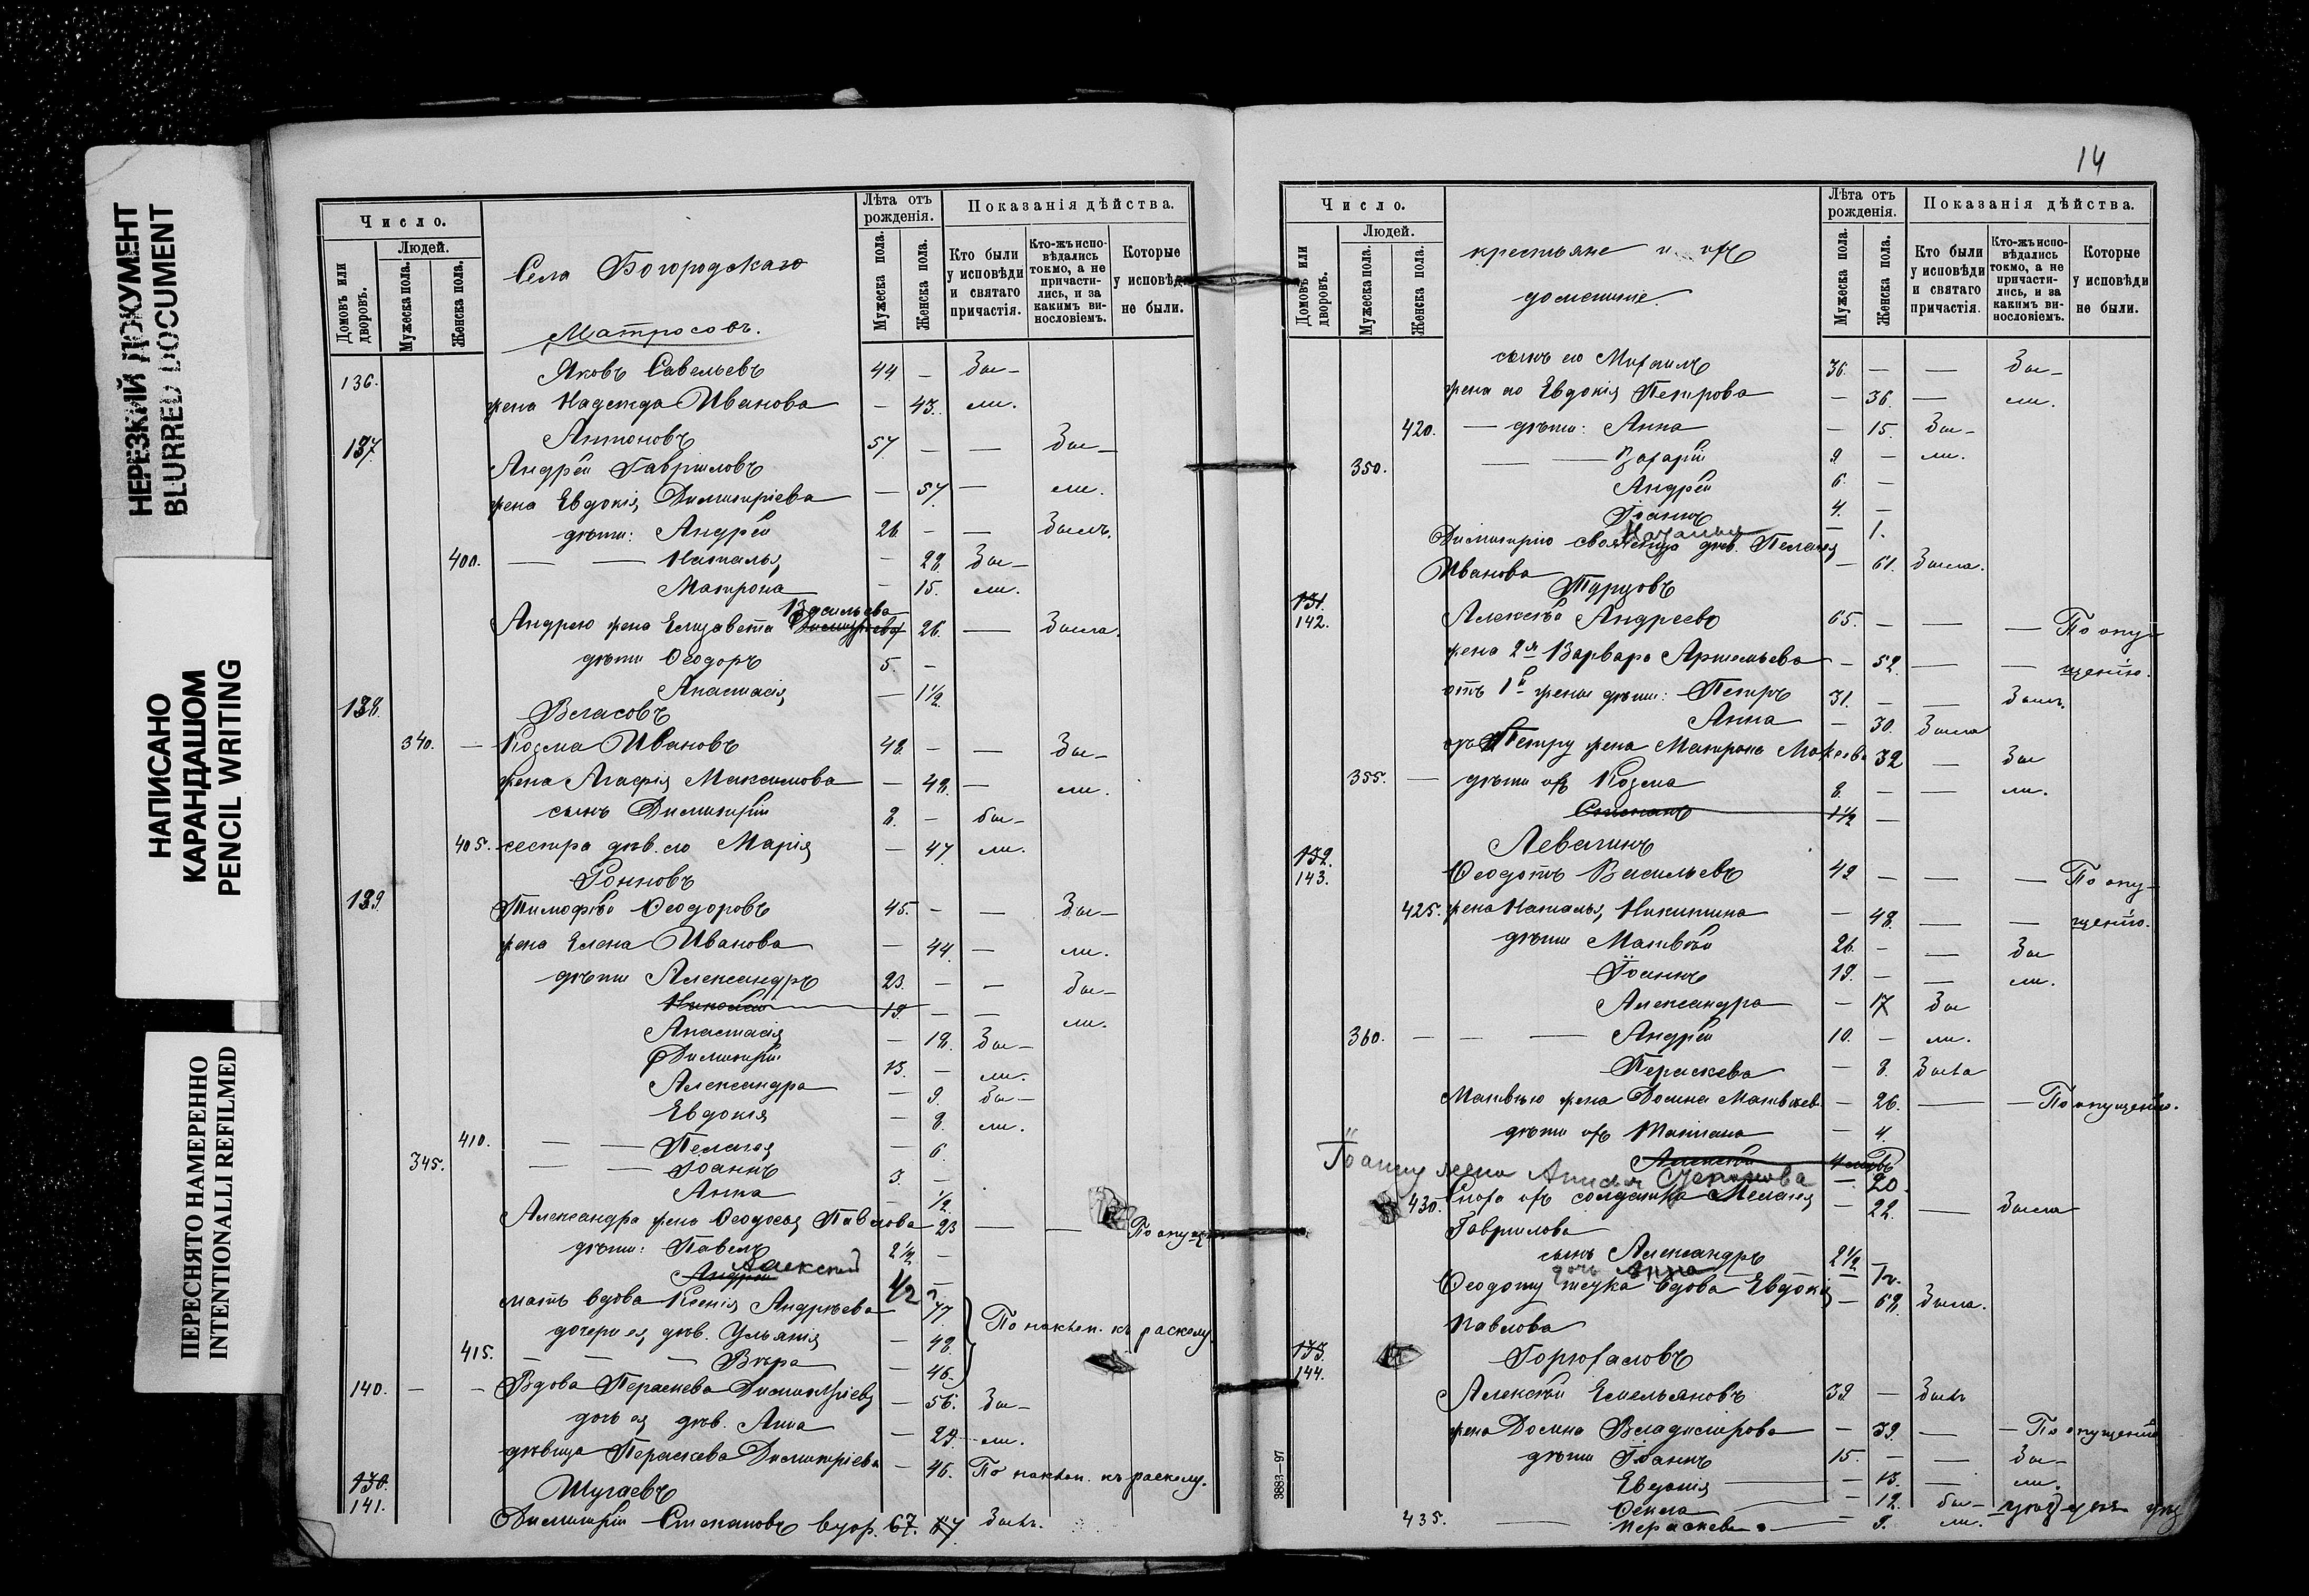 НЕРЕЗКИЙ ДОКУМЕНТ
BLURRED DOCUMENT
НАПИСАНО
КАРАНДАШОМ
PENCIL WRITING
ПЕРЕСНЯТО НАМЕРЕННО
INTENTIONALLI REFILMED
Число.
Людей.
Домовъ или дворовъ.
Мужеска пола.
Женска пола.
Села Богородскаго
Лѣта отъ рожденія.
Мужеска пола.
Женска пола.
Показанія дѣйства.
Кто были у исповѣди и святаго причастія.
Кто-жъ исповѣдались токмо, а не причастились, и за какимъ винословіемъ.
Которые у исповѣди не были.
Матросовъ.
136. Яковъ Савельевъ 44. — Бы-
жена Надежда Иванова — 43. ли.
Антоновъ
137. Андрей Гавриловъ 57. — — Бы-
жена Евдокія Димитріева — 57. — ли.
дѣти: Андрей 26. — — Былъ.
400. — — Наталья — 22. Бы-
Матрона — 15. ли.
Васильева
Андрею жена Елизавета Димитріева 26. — Была.
дѣти Ѳеодоръ 5. —
Анастасія — 1½
138. Власовъ
340. — Козма Ивановъ 48. — — Бы-
жена Агафія Максимова — 48. — ли.
сынъ Димитрій 8. — бы-
405. сестра дѣв. его Марія — 47. ли.
139. Тимофей Ѳеодоровъ 45. — — Бы-
жена Елена Иванова — 44. — ли.
дѣти Александръ 23. — — бы-
Николай 19. — — ли.
Анастасія — 18. Бы-
Димитрій 13. — ли.
Александра — 9. бы-
Евдокія — 8. ли.
410. — — Пелагея — 6.
345. — — Іоаннъ 3. —
Анна — ½
Александра жена Ѳеодосья Павлова 23 — — По опущ
дѣти: Павелъ 2½ —
Алексей
Андрей 1/2 —
мать вдова Ксенія Андреева 77.
дочери ея дѣв. Ульянія — 48. По наклон. къ расколу.
415. — — — Вѣра — 46.
140. — — Вдова Пераскева Димитріева — 56. Бы-
дочь ея дѣв. Анна — 27. ли.
дѣвица Пераскева Димитріева — 46. По наклон. къ расколу.
130.
141. Шугаевъ
Димитрій Степановъ вдов. 67. Былъ.
14
Число.
Людей.
Домовъ или дворовъ.
Мужеска пола.
Женска пола.
крестьяне и ихъ
домашніе.
Лѣта отъ рожденія.
Мужеска пола.
Женска пола.
Показанія дѣйства.
Кто были у исповѣди и святаго причастія.
Кто-жъ исповѣдались токмо, а не причастились, и за какимъ винословіемъ.
Которые у исповѣди не были.
сынъ его Михаилъ 36. — — Бы-
жена его Евдокія Петрова — 36. — ли.
420. — дѣти: Анна — 15. Бы-
350. — — Захарій 9. — ли.
Андрей 6. —
Іоаннъ 4. —
Наталья — 1.
Димитрію свояченица дѣв. Пелагея
Иванова — 61. Была.
131.
142. Турцовъ
Алексѣй Андреевъ 65. — — — По опу-
жена 2я Варвара Артемьева — 52. — — щенію.
отъ 1й жены дѣти: Петръ 31. — — Былъ.
Анна — 30. Была
Петру жена Матрона 32 — Бы
355. — дѣти ихъ Козма 8. — — ли.
Степанъ 1½ —
132.
143. Левагинъ
Ѳеодотъ Васильевъ 49 — — — По опу-
425. жена Наталья Никитина — 48. — — щенію.
дѣти Матвѣй 26. — — Бы
Іоаннъ 19. — — ли.
Александра — 17 Бы
360. — — — Андрей 10. — ли.
Пераскева — 8. Была
Матвѣю жена Домна Матвѣев. — 26. — — По опущенію.
дѣти ихъ Татіана — 4.
Алексѣй
Іоанну жена — 20.
430. Сноха ихъ солдатка Меланія — 22. — Была
Гаврилова
сынъ Александръ 2½ —
дочь Анна
Ѳеодоту тетка вдова Евдокія — 68. Была.
Павлова
133.
144. Горюхаловъ
Алексѣй Емельяновъ 39. — Былъ
жена Домна Владимірова — 39. — — По опущенію
дѣти Іоаннъ 15. — — Бы-
Евдокія — 13. — ли.
Ѳекла — 12. бы-
435. — Пераскева — 9. ли.
3883—97